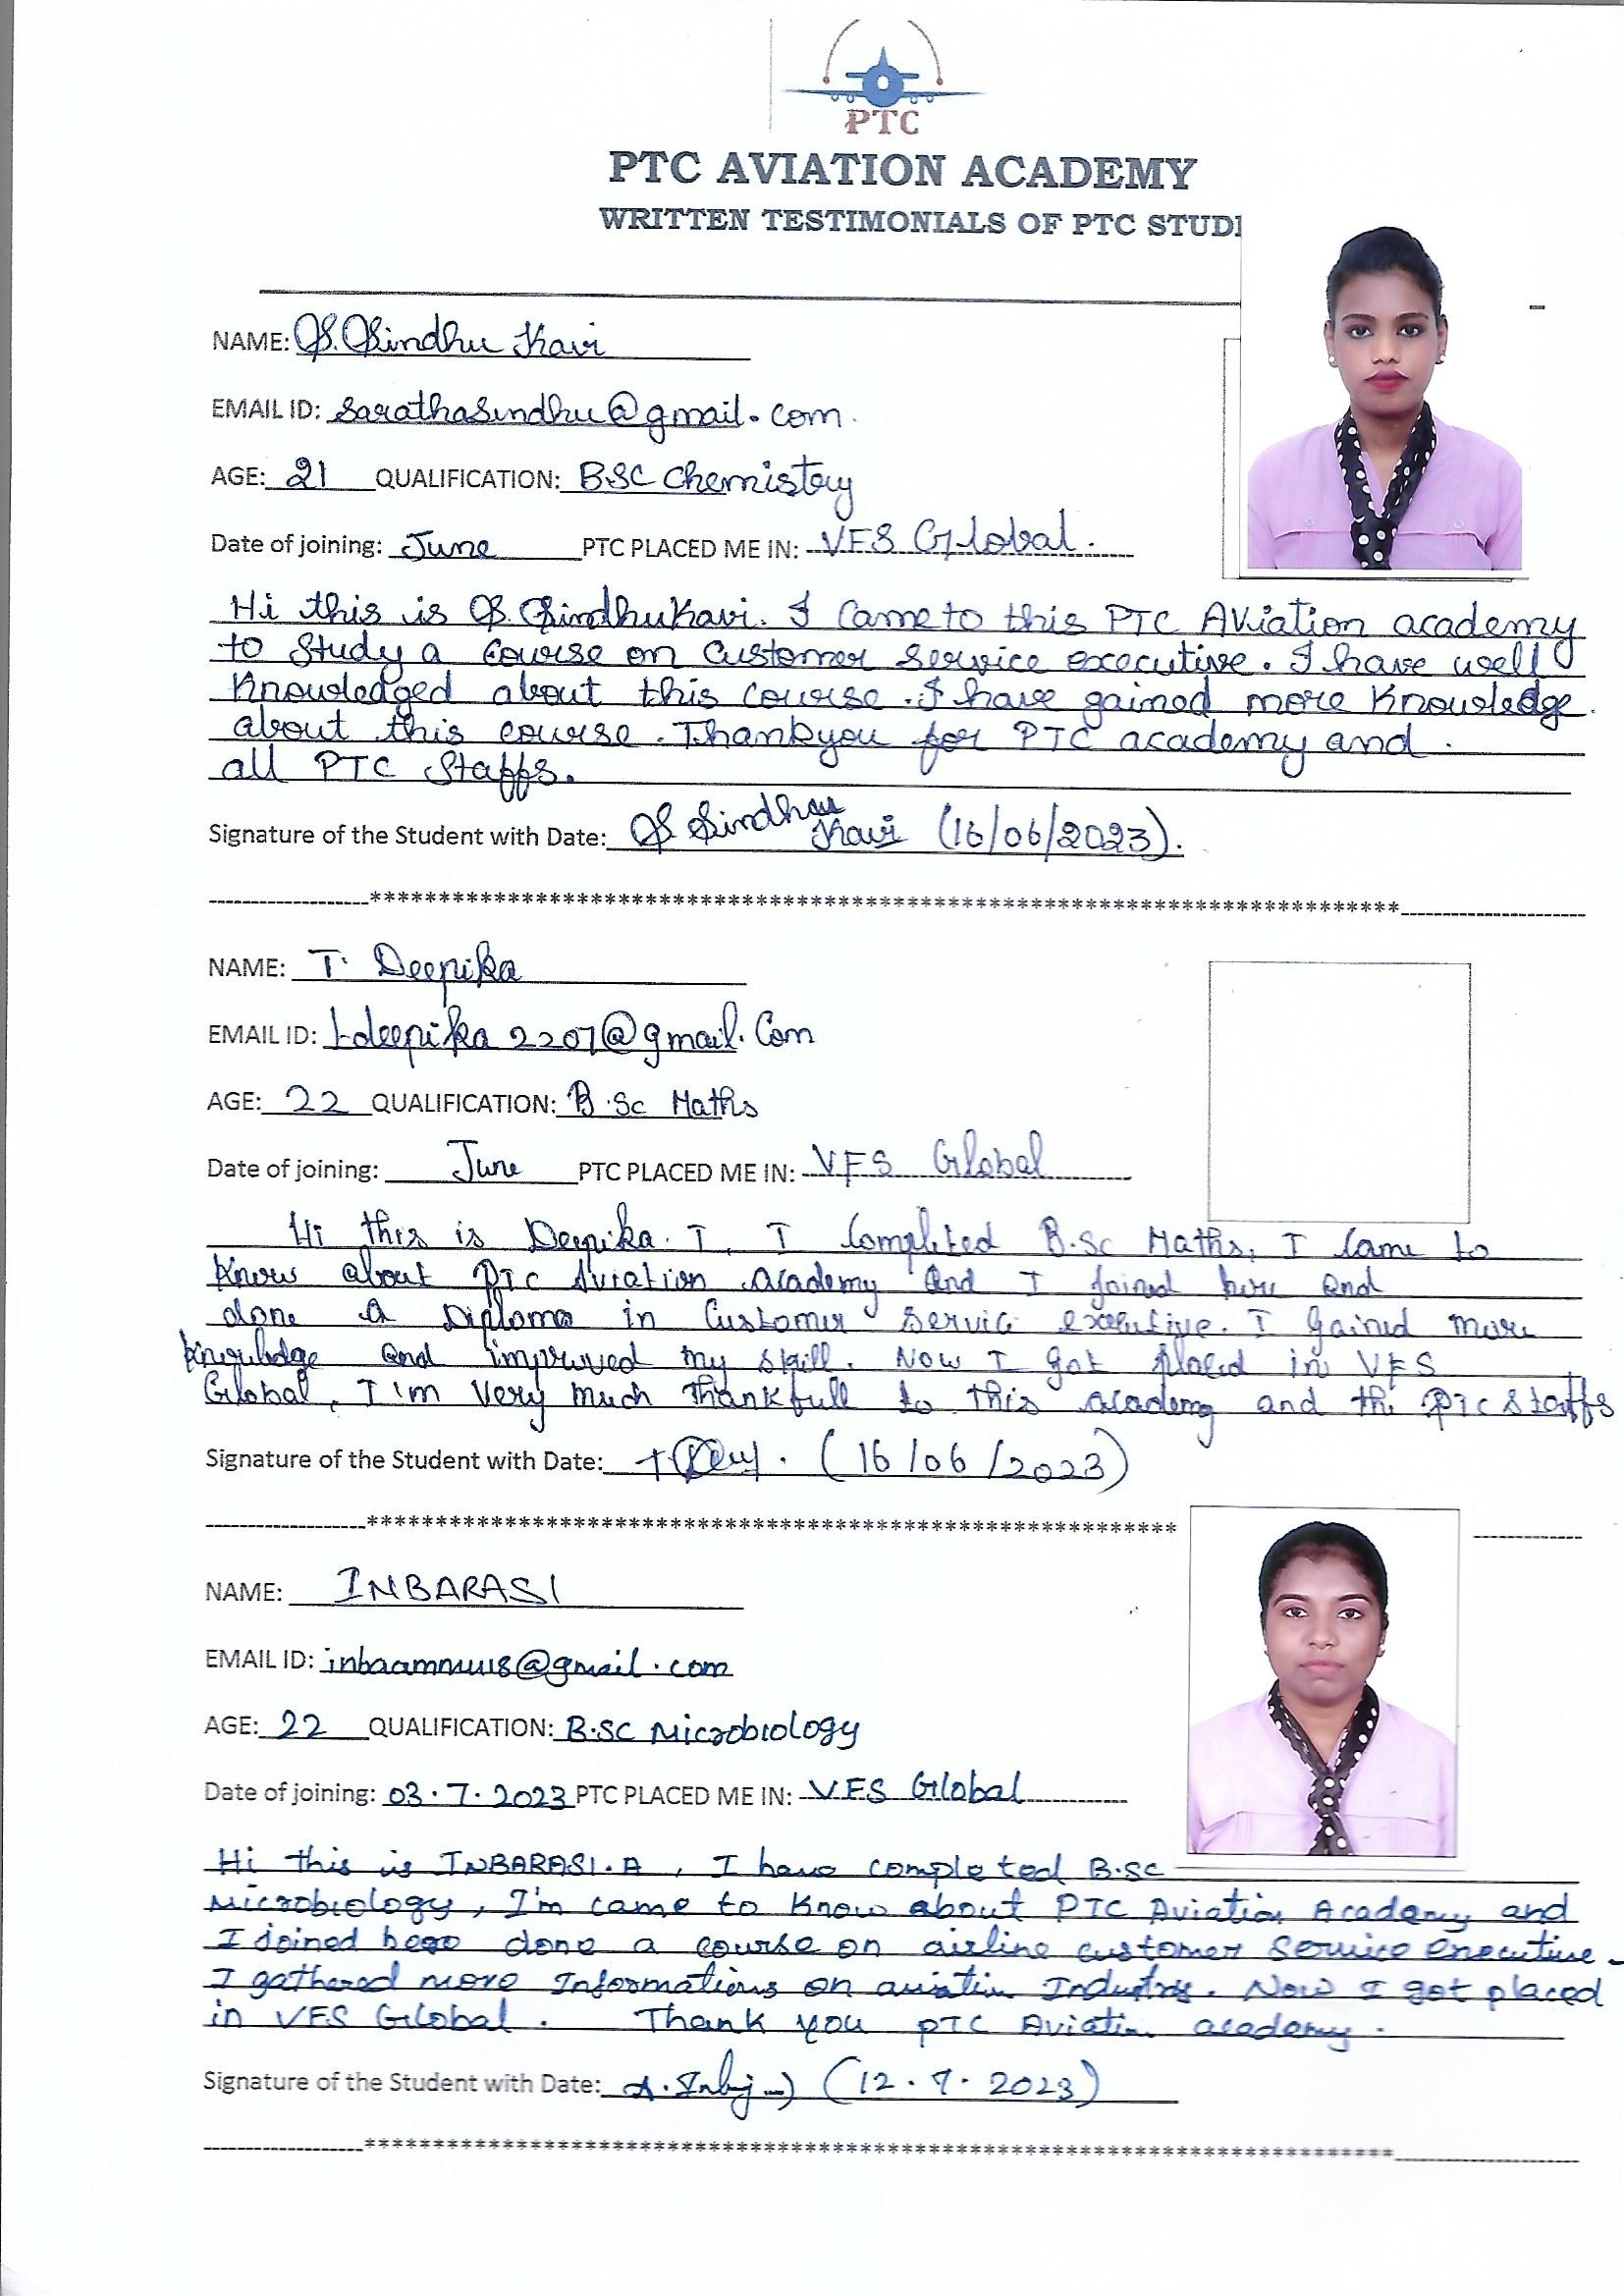 PTC
PTC AVIATION ACADEMY
WRITTEN TESTIMONIALS OF PTC STUD
NAME: S. Sindhu Kavi
EMAIL ID: sarathasindhu@gmail.com.
AGE: 21 QUALIFICATION: BSC Chemistry
Date of joining: June PTC PLACED ME IN: VFS Global.
Hi this is S. Sindhukavi. I Came to this PTC AViation academy
to Study a Course on Customer Service executive. I have well
Knowledged about this course. I have gained more Knowledge.
about this course. Thankyou for PTC academy and.
all PTC Staffs.
Signature of the Student with Date: S Sindhu Kavi (16/06/2023).
********************
NAME: T. Deepika
EMAIL ID: tdeepika2207@gmail.Com
AGE: 22 QUALIFICATION: B.Sc Maths
Date of joining: June PTC PLACED ME IN: VFS Global
Hi this is Deepika. T, I Completed B.Sc Maths, I Came to
Know about PTC Aviation academy and I joined here and
done a Diploma in Customer Service executive. I Gained more
knowledge and improved my skill. Now I got placed in VFS
Global, I'm Very much thankfull to this academy and the PTC Staffs
Signature of the Student with Date: (16/06/2023)
********************
NAME: INBARASI
EMAIL ID: @gmail.com
AGE: 22 QUALIFICATION: B.SC Microbiology
Date of joining: 03.7.2023 PTC PLACED ME IN: VFS Global
Hi this is INBARASI.A, I have completed B.sc
Microbiology, I'm came to Know about PTC Aviation Academy and
I joined here done a course on airline customer Service executive.
I gathered more Informations on aviation Industry. Now I got placed
in VFS Global. Thank you PTC Aviation academy.
Signature of the Student with Date: (12.7.2023)
********************